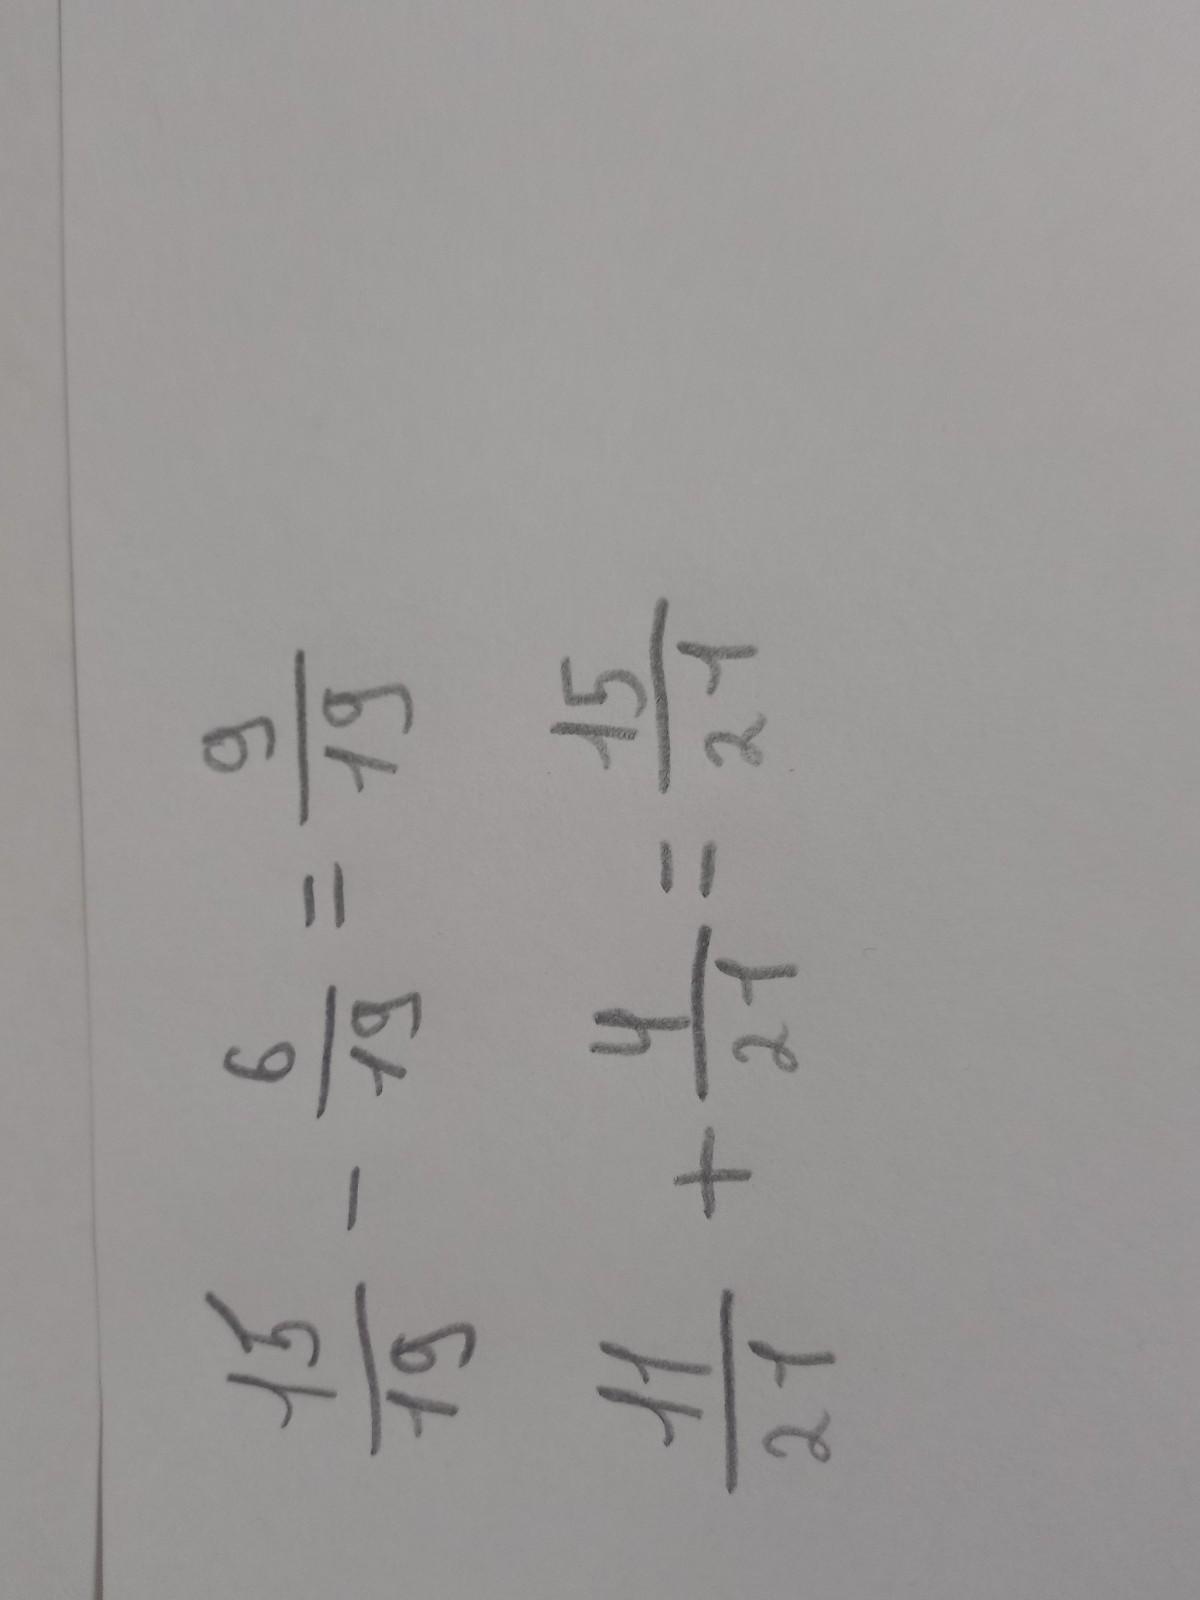 15/19 - 6/19 = 9/19
11/21 + 4/21 = 15/21